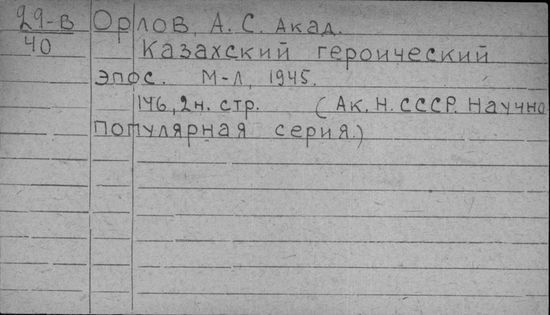 29-В
40
Орлов, А. С. Акад.
Казахский героический
эпос. М-Л, 1945.
146, 2 н. стр. (Ак. Н. СССР. Научно
популярная серия.)